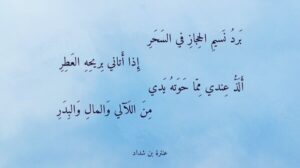 بَردُ نَسيمِ الحِجازِ في السَحَرِ
إِذا أَتاني بِريحِهِ العَطِرِ
أَلَذُّ عِندي مِمّا حَوَتهُ يَدي
مِنَ اللَآلي وَالمالِ وَالبِدَرِ
عنترة بن شداد